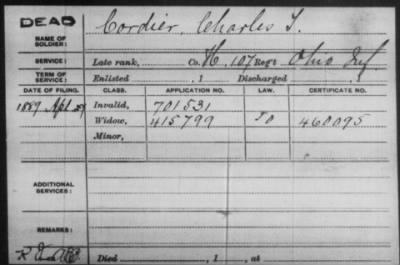 DEAD
NAME OF SOLDIER: Cordier, Charles T.
SERVICE: Late rank, Co. H, 107 Reg't Ohio Inf
TERM OF SERVICE: Enlisted , 1 Discharged , 1
DATE OF FILING. CLASS. APPLICATION NO. LAW. CERTIFICATE NO.
1889 Apl 29 Invalid, 701531
Widow, 415799 460095
Minor,
ADDITIONAL SERVICES:
REMARKS:
Died , 1 , at